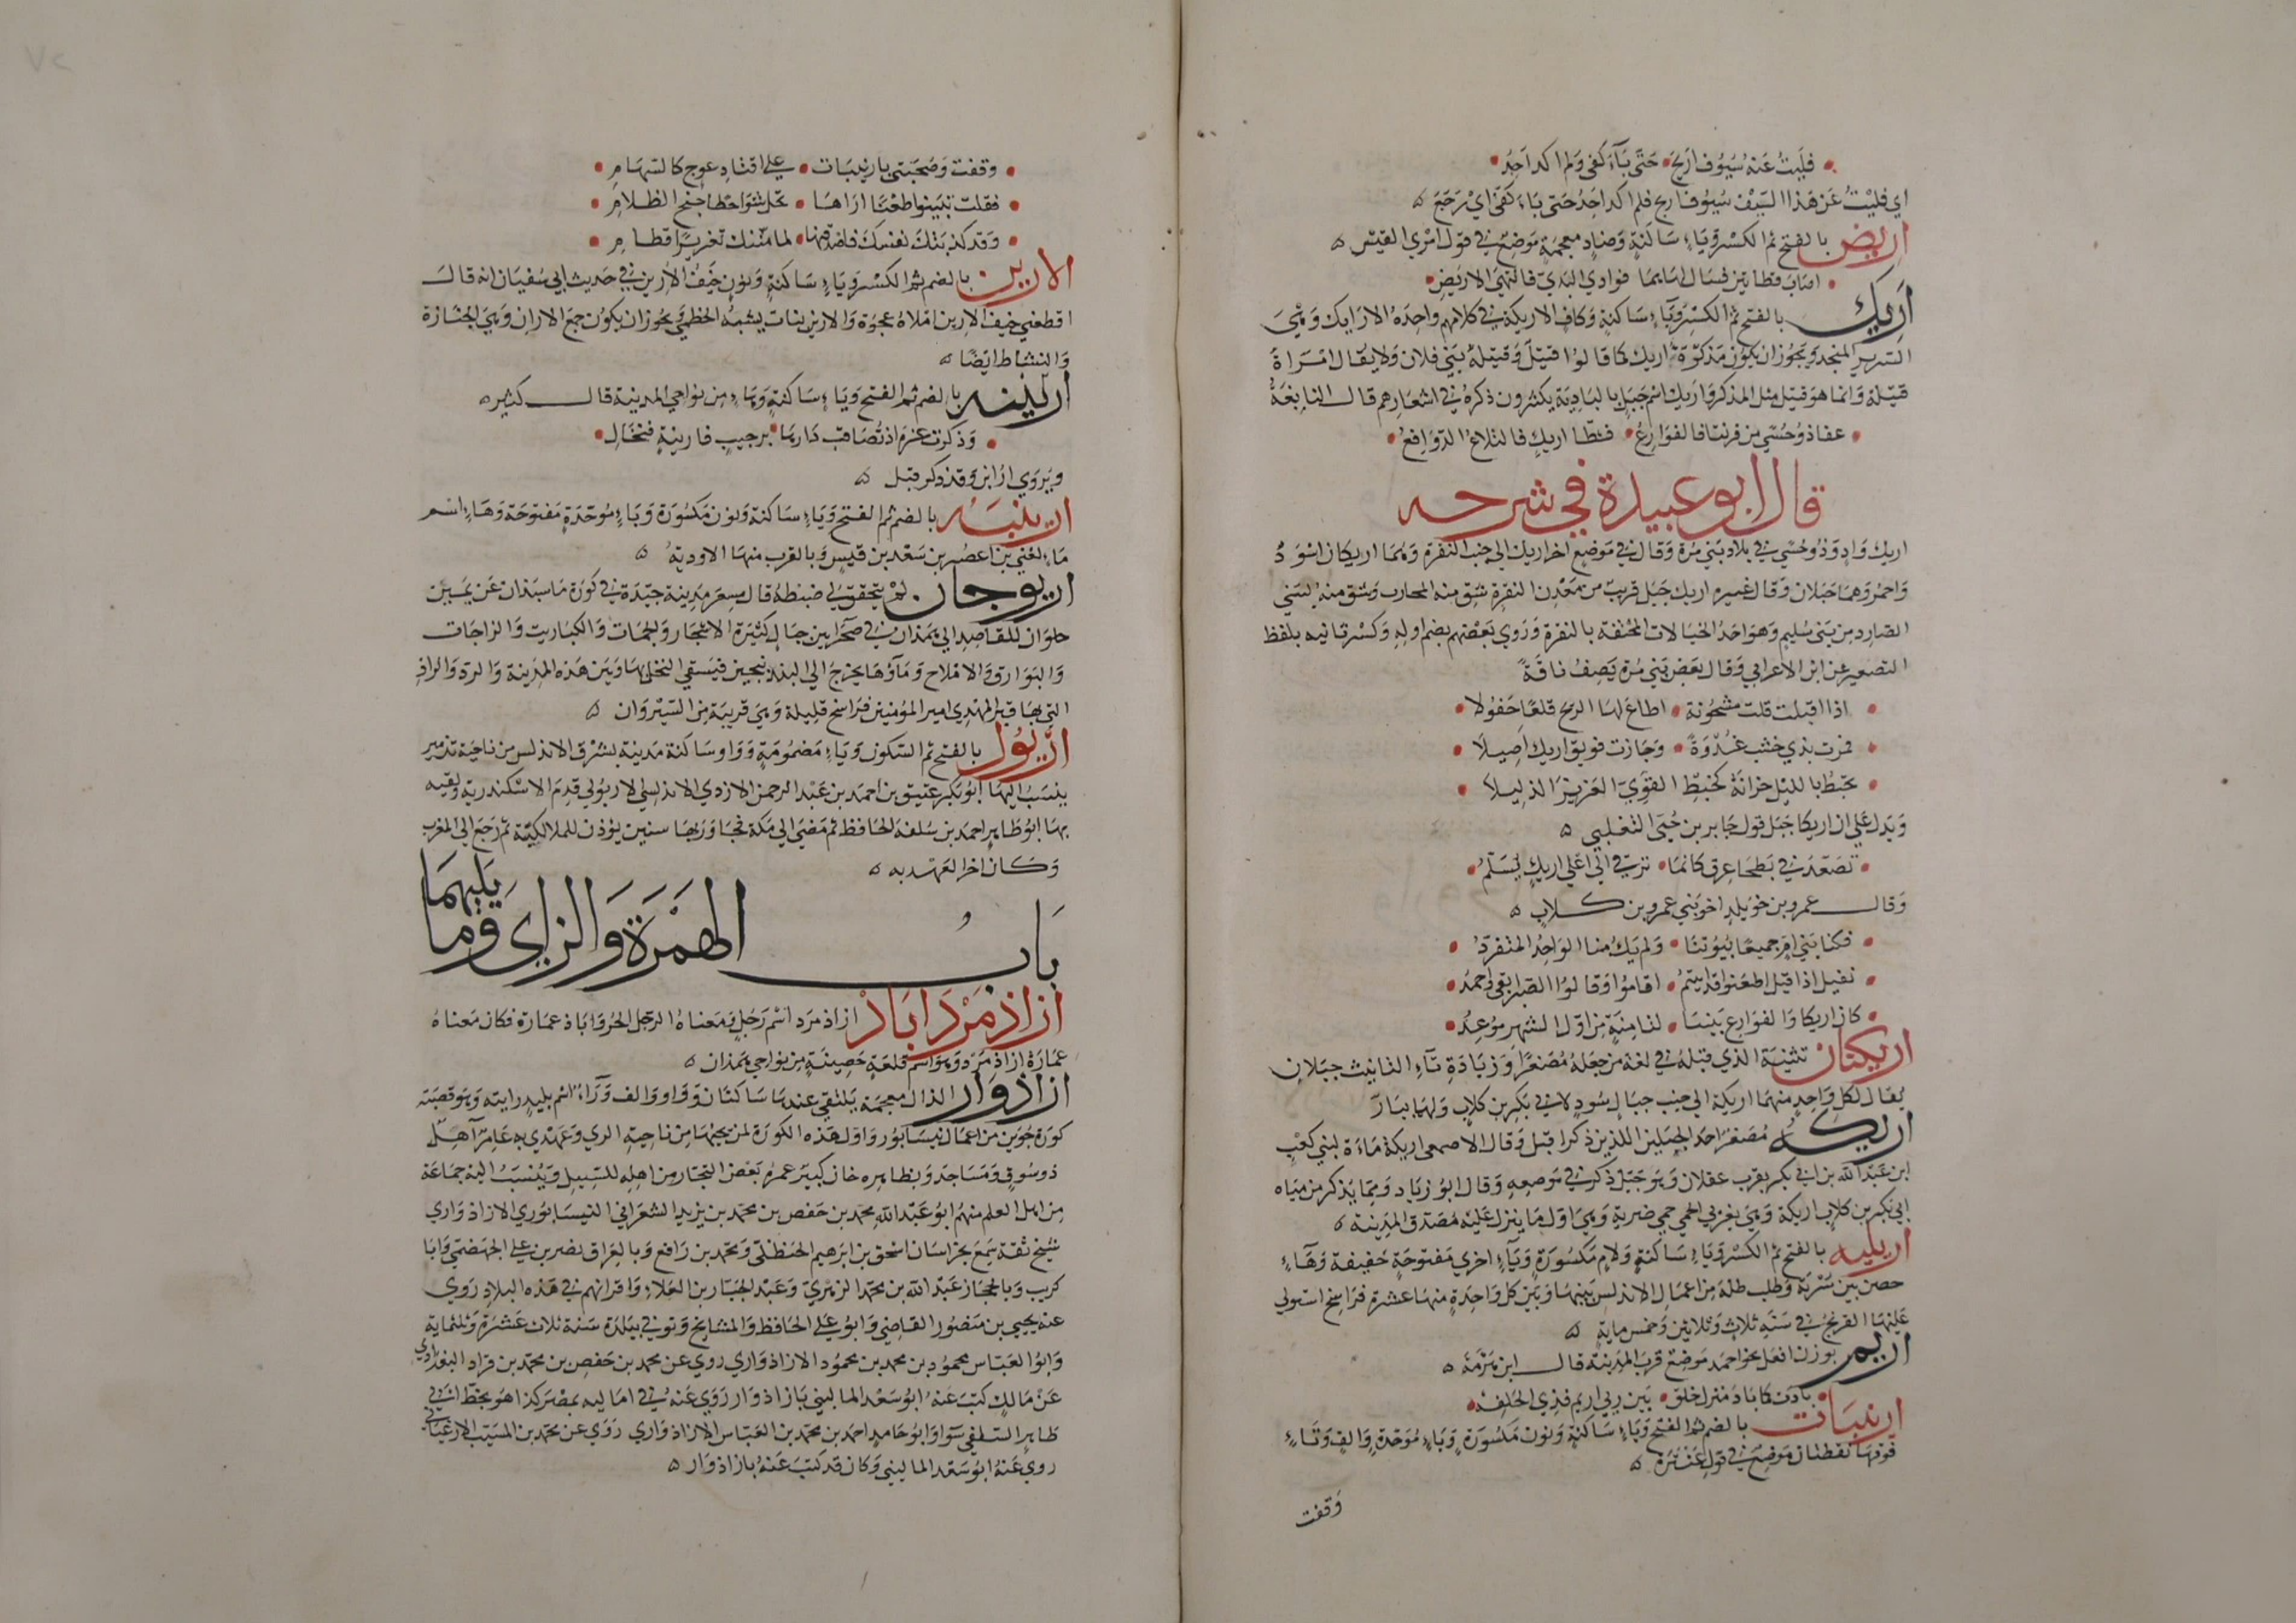 فليت عنه سيوف اريح حتى باء كفى ولم اكد اجد
اي فليت عن هذا السيف سيوف اريح فلم اكد اجد حتى باء كفى اي رجع
اريض بالفتح ثم الكسر وياء ساكنة وضاد معجمة موضع في قول امرئ القيس
اصاب قطاتين فسال لواهما فوادي البدي فانتهى لاريض
اريك بالفتح ثم الكسر وياء ساكنة وكاف الاريكة في كلامهم واحدة الارايك وهي
السرير المنجد ويجوز ان يكون مذكره اريك كما قالوا قتيل وقتيلة بني فلان ولا يقال امراة
قتيلة وانما هو قتيل مثل المذكر واريك اسم جبل بالبادية يكثرون ذكره في اشعارهم قال النابغة
عفا ذو حسي من فرتنا فالفوارع فشطا اريك فالتلاع الدوافع
قال ابو عبيدة في شرحه
اريك واد وذو حسي في بلاد بني مرة وقال في موضع اخر اريك الى جنب النقرة وهما اريكان اسود
واحمر وهما جبلان وقال غيره اريك جبل قريب من معدن النقرة شق منه لمحارب وشق منه لبني
الصارد من بني سليم وهو احد الخيالات المحتفة بالنقرة وروي بعضهم بضم اوله وكسر ثانيه بلفظ
التصغير عن ابن الاعرابي وقال بعض بني مرة يصف ناقة
اذا اقبلت قلت مشحونة اطاع لها الريح قلعا جفولا
فمرت بذي خشب غدوة وجازت فويق اريك اصيلا
تخبط بالليل حزانه كخبط القوي العزيز الذليلا
ويدل على ان اريكا جبل قول جابر بن حني التغلبي
تصعد في بطحا عرق كانما ترقى الى اعلى اريك بسلم
وقال عمرو بن خويلد اخو بني عمرو بن كلاب
فكنا بني ام جميعا بيوتنا ولم يك منا الواحد المنفرد
نفيل اذا قيل اظعنوا قد اتيتم اقاموا وقالوا الصبر ابقى واحمد
كان اريكا والفوارع بيننا لثامنة من اول الشهر موعد
اريكتان تثنية الذي قبله في لغة من جعله مصغرا وزيادة تاء التانيث جبلان
يقال لكل واحد منهما اريكة الى جنب جبال سود لابي بكر بن كلاب ولهما بيار
اريكة مصغر احد الجبلين اللذين ذكرا قبل وقال الاصمعي اريكة ماءة لبني كعب
ابن عبد الله بن ابي بكر بقرب عقلان وهو جبل ذكر في موضعه وقال ابو زياد ومما يذكر من مياه
ابي بكر بن كلاب اريكة وهي بغربي الحمى حمى ضرية وهي اول ما ينزل عليه مصدق المدينة
اريليه بالفتح ثم الكسر وياء ساكنة ولام مكسورة وياء اخرى مفتوحة خفيفة وهاء
حصن بين سرته وطلبطلة من اعمال الاندلس بينها وبين كل واحدة منهما عشرة فراسخ استولى
عليها الفرنج في سنة ثلاث وثلاثين وخمس ماية
اريم بوزن افعل نحو احمد موضع قرب المدينة قال ابن هرمة
بادت كما باد منزل خلق بين ربي اريم فذي الحلفه
ارينبات بالضم ثم الفتح وياء ساكنة ونون مكسورة وباء موحدة والف وتاء
فوقها نقطتان موضع في قول عنترة
وقفت
وقفت وصحبتي بارينبات على اقتاد عوج كالسهام
فقلت تبينوا ظعنا اراها تحل شواحطا جنح الظلام
وقد كذبتك نفسك فاصدقنها لما منتك تغريرا قطام
الارين بالضم ثم الكسر وياء ساكنة ونون خيف الارين في حديث ابي سفيان انه قال
اقطعني خيف الارين املاه عجوة والارين نبات يشبه الخطمي ويجوز ان يكون جمع الاران وهي الجنازة
والنشاط ايضا
ارينه بالضم ثم الفتح وياء ساكنة وهاء من نواحي المدينة قال كثير
وذكرت عزة اذ تصاقب دارها برحيب فارينة فنخال
ويروي ارابن وقد ذكر قبل
ارينبه بالضم ثم الفتح وياء ساكنة ونون مكسورة وباء موحدة مفتوحة وهاء اسم
ماء لغني بن اعصر بن سعد بن قيس وبالقرب منها الاودية
اريوجان لم يتحقق لي ضبطه قال مسعر مدينة جيدة في كورة ماسبذان عن يمين
حلوان للقاصد الى همذان في صحرا بين جبال كثيرة الاشجار والحمات والكباريت والزاجات
والبوارق والاملاح وماؤها يخرج الى البندنيجين فيسقي النخل بها وبين هذه المدينة والرد والراذ
التي بها قبر المهدي امير المؤمنين فراسخ قليلة وهي قريبة من السيروان
اريول بالفتح ثم السكون وياء مضمومة وواو ساكنة مدينة بشرق الاندلس من ناحية تدمير
ينسب اليها ابو بكر عتيق بن احمد بن عبد الرحمن الازدي الاندلسي الاريولي قدم الاسكندرية ولقيه
بها ابو طاهر احمد بن سلفة الحافظ ثم مضى الى مكة فجاور بها سنين يؤذن للمالكية ثم رجع الى المغرب
وكان اخر العهد به
باب الهمزة والزاي وما يليهما
ازاذ مرد اباذ ازاذ مرد اسم رجل ومعناه الرجل الحر واباذ عمارة فكان معناه
عمارة ازاذ مرد وهو اسم قلعة حصينة من نواحي همذان
ازاذوار الذال معجمة يلتقي عندها ساكنان وواو والف وراء اسم بليد رايته وهو قصبة
كورة جوين من اعمال نيسابور واول هذه الكورة لمن يجيها من ناحية الري وعهدي به عامرا اهل
ذو سوق ومساجد وبظاهره خان كبير عمره بعض التجار من اهله للسبيل وينسب اليه جماعة
من اهل العلم منهم ابو عبد الله محمد بن حفص بن محمد بن يزيد الشعراني النيسابوري الازاذواري
شيخ ثقة سمع بخراسان اسحق بن ابرهيم الحنظلي ومحمد بن رافع وبالعراق نصر بن علي الجهضمي وابا
كريب وبالحجاز عبد الله بن محمد الزهري وعبد الجبار بن العلاء واقرانهم في هذه البلاد روي
عنه يحيى بن منصور القاضي وابو علي الحافظ والمشايخ وتوفي ببلده سنة ثلاث عشرة وثلثماية
وابو العباس محمود بن محمد بن محمود الازاذواري روي عن محمد بن حفص بن محمد بن قراد البغدادي
عن مالك كتب عنه ابو سعد الماليني بازاذوار روي عنه في اماليه بمصر كذا هو بخط ابي
طاهر السلفي سوا وابو حامد احمد بن محمد بن العباس الازاذواري روي عن محمد بن المسيب الارغياني
روي عنه ابو سعد الماليني وكان قد كتب عنه بازاذوار